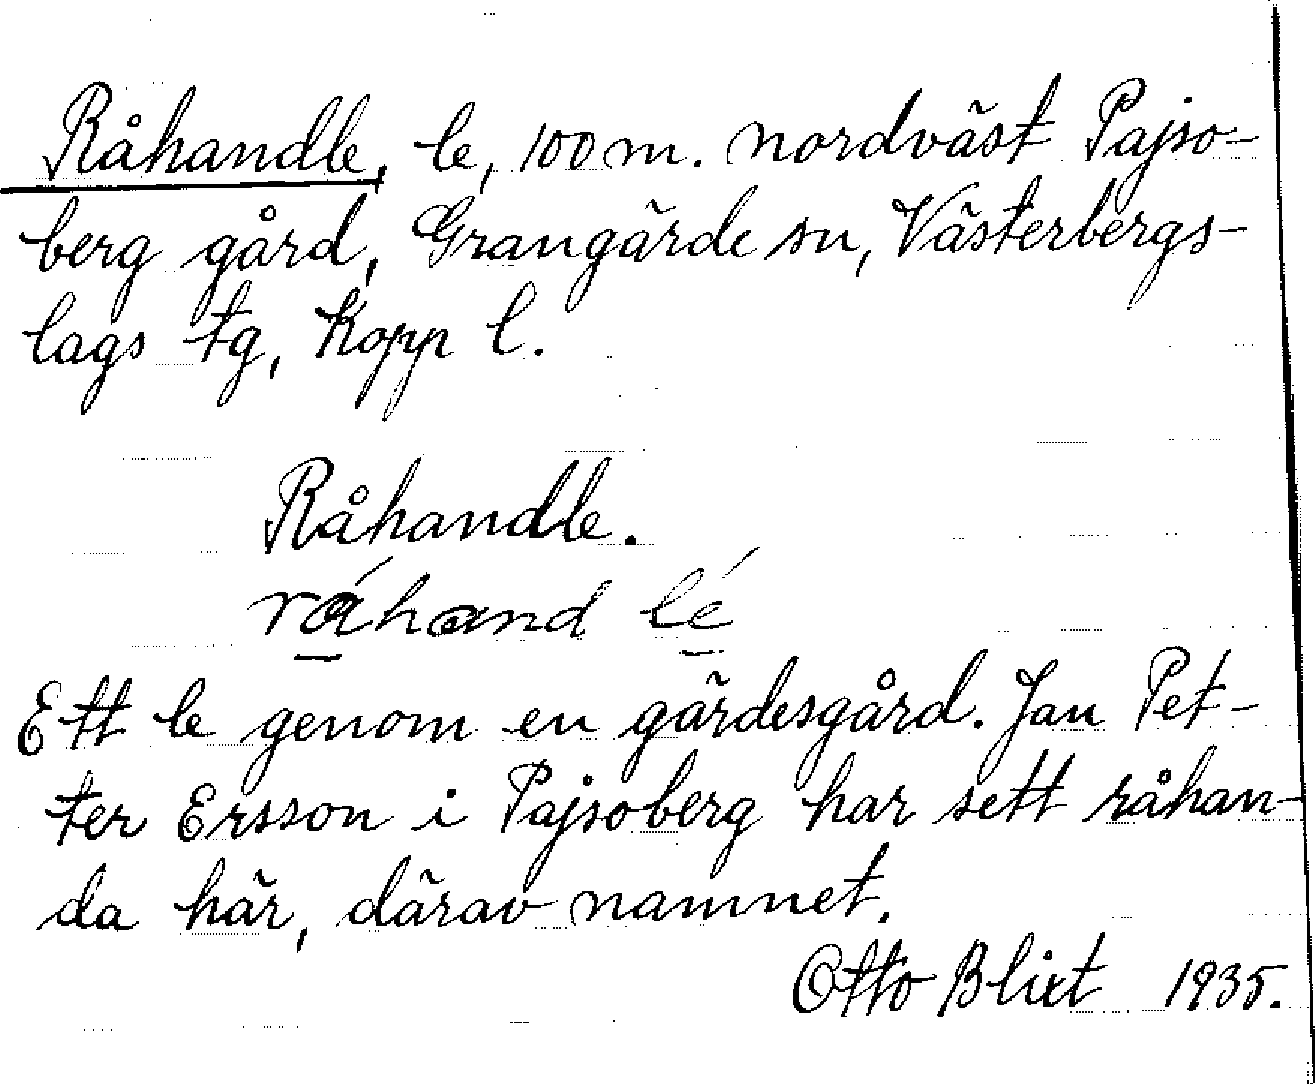 Råhandle, le, 100 m. nordväst Pajso-
berg gård, Grangärde sn, Västerbergs-
lags tg, Kopp l.
Råhandle.
råhand lé
Ett le genom en gärdesgård. Jan Pet-
ter Ersson i Pajsoberg har sett råhan-
da här, därav namnet.
Otto Blixt 1935.